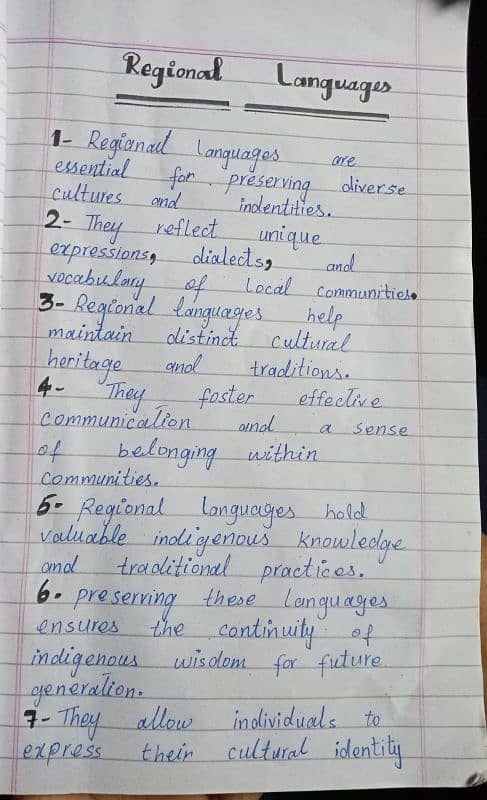 Regional Languages
1- Regional Languages are
essential for preserving diverse
cultures and indentities.
2- They reflect unique
expressions, dialects, and
vocabulary of Local communities.
3- Regional languages help
maintain distinct cultural
heritage and traditions.
4- They foster effective
communication and a sense
of belonging within
communities.
5- Regional Languages hold
valuable indigenous knowledge
and traditional practices.
6. preserving these languages
ensures the continuity of
indigenous wisdom for future
generation.
7- They allow individuals to
express their cultural identity